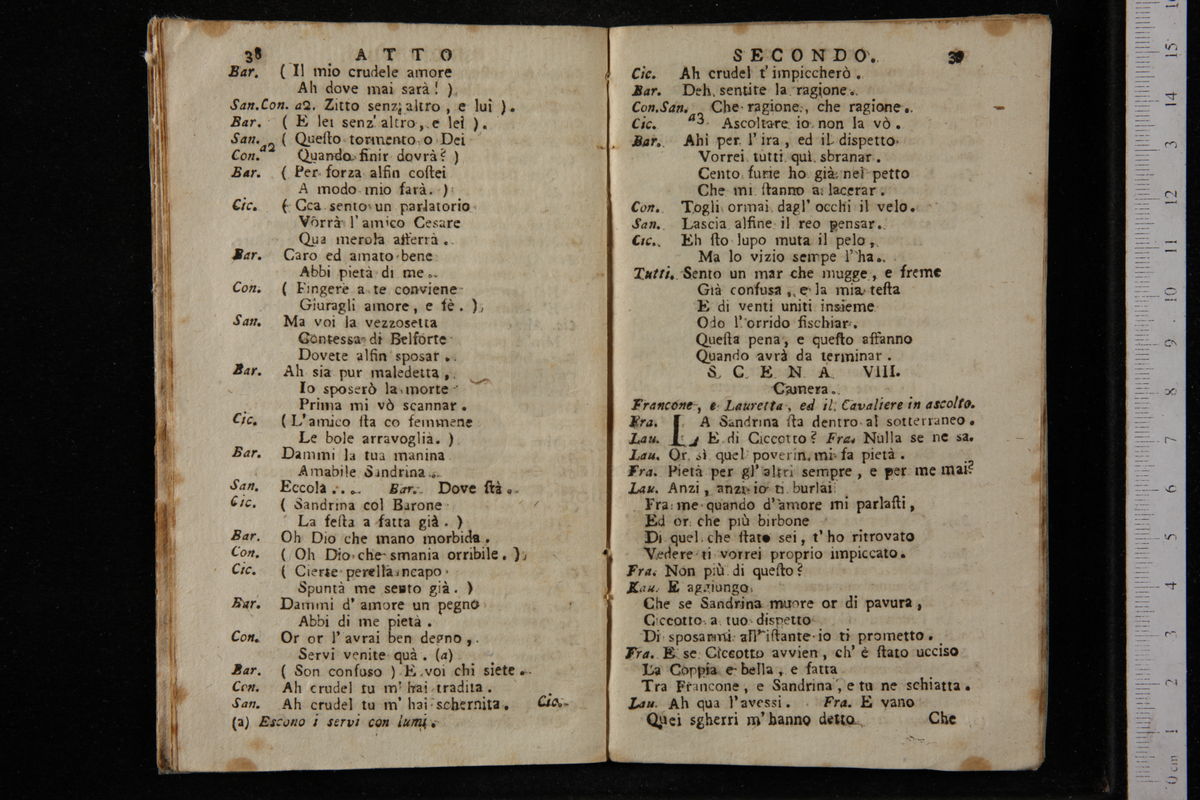 38 ATTO
Bar. ( Il mio crudele amore
Ah dove mai sarà ! )
San.Con. a2. Zitto senz' altro , e lui ) .
Bar. ( E lei senz' altro , e lei ) .
San. a2 ( Queſto tormento o Dei
Con. Quando finir dovrà ? )
Bar. ( Per forza alfin coſtei
A modo mio farà . )
Cic. ( Cca sento un parlatorio
Vorrà l'amico Cesare
Qua merola afferrà .
Bar. Caro ed amato bene
Abbi pietà di me .
Con. ( Fingere a te conviene
Giuragli amore , e fè . )
San. Ma voi la vezzosetta
Contessa di Belforte
Dovete alfin sposar .
Bar. Ah sia pur maledetta ,
Io sposerò la morte
Prima mi vò scannar .
Cic. ( L'amico ſta co femmene
Le bole arravoglià . )
Bar. Dammi la tua manina
Amabile Sandrina .
San. Eccola . . . Bar. Dove ſtà .
Cic. ( Sandrina col Barone
La feſta a fatta già . )
Bar. Oh Dio che mano morbida .
Con. ( Oh Dio che smania orribile . )
Cic. ( Cierte perella ncapo
Spuntà me sento già . )
Bar. Dammi d' amore un pegno
Abbi di me pietà .
Con. Or or l' avrai ben degno ,
Servi venite quà . (a)
Bar. ( Son confuso ) E voi chi siete .
Con. Ah crudel tu m' hai tradita .
San. Ah crudel tu m' hai schernita . Cic.
(a) Escono i servi con lumi .
SECONDO. 39
Cic. Ah crudel t' impiccherò .
Bar. Deh sentite la ragione .
Con.San. Che ragione , che ragione .
Cic. a3 Ascoltare io non la vò .
Bar. Ahi per l' ira , ed il dispetto
Vorrei tutti quì sbranar .
Cento furie ho già nel petto
Che mi ſtanno a lacerar .
Con. Togli ormai dagl' occhi il velo .
San. Lascia alfine il reo pensar .
Cic. Eh ſto lupo muta il pelo ,
Ma lo vizio sempe l' ha .
Tutti. Sento un mar che mugge , e freme
Già confusa , e la mia teſta
E di venti uniti insieme
Odo l' orrido fischiar .
Queſta pena , e queſto affanno
Quando avrà da terminar .
SCENA VIII.
Camera .
Francone , e Lauretta , ed il Cavaliere in ascolto.
Fra. LA Sandrina ſta dentro al sotterraneo .
Lau. E di Ciccotto ? Fra. Nulla se ne sa.
Lau. Or sì quel poverin mi fa pietà .
Fra. Pietà per gl' altri sempre , e per me mai?
Lau. Anzi , anzi io ti burlai
Fra me quando d'amore mi parlaſti ,
Ed or che più birbone
Di quel che ſtato sei , t' ho ritrovato
Vedere ti vorrei proprio impiccato .
Fra. Non più di queſto ?
Lau. E aggiungo
Che se Sandrina muore or di pavura ,
Ciccotto a tuo dispetto
Di sposarmi all' iſtante io ti prometto .
Fra. E se Ciccotto avvien , ch' è ſtato ucciso
La Coppia e bella , e fatta
Tra Francone , e Sandrina , e tu ne schiatta .
Lau. Ah qua l'avessi . Fra. E vano
Quei sgherri m'hanno detto Che